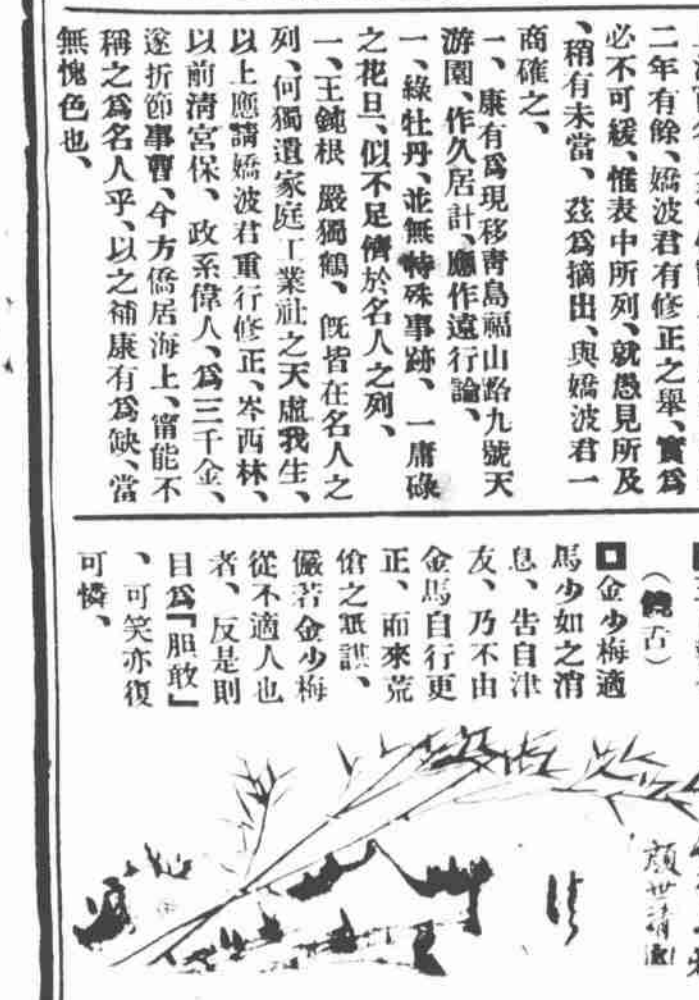 二年有餘、嬌波君有修正之舉、實爲
必不可緩、惟表中所列、就愚見所及
、稍有未當、茲爲摘出、與嬌波君一
商確之、
一、康有爲現移靑島福山路九號天
游園、作久居計、應作遠行論、
一、綠牡丹、並無特殊事跡、一庸碌
之花旦、似不足儕於名人之列、
一、王鈍根 嚴獨鶴、旣皆在名人之
列、何獨遺家庭工業社之天虛我生、
以上應請嬌波君重行修正、岑西林、
以前淸宮保、政系偉人、爲三千金、
遂折節事曹、今方僑居海上、甯能不
稱之爲名人乎、以之補康有爲缺、當
無愧色也、
金少梅適
馬少如之消
息、吿自津
友、乃不由
金馬自行更
正、而來荒
傖之詆諆、
儼若金少梅
從不適人也
者、反是則
目爲「胆敢」
、可笑亦復
可憐、
顏世淸